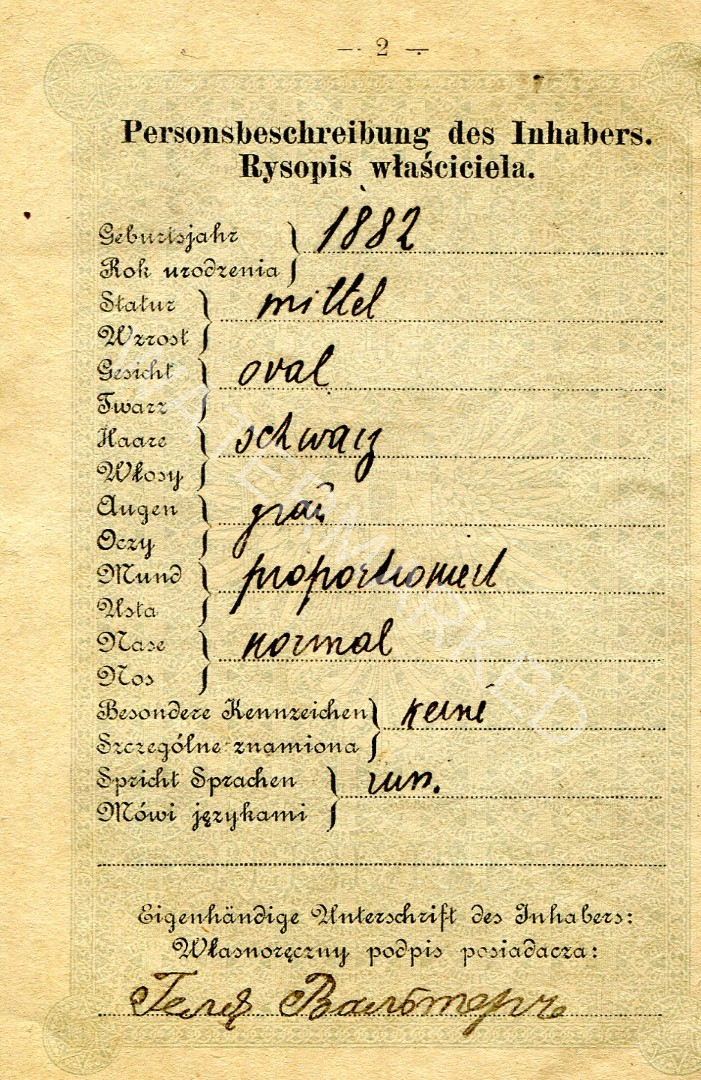 — 2 —
Personsbeschreibung des Inhabers.
Rysopis właściciela.
Geburtsjahr
Rok urodzenia
1882
Statur
Wzrost
mittel
Gesicht
Twarz
oval
Haare
Włosy
schwarz
Augen
Oczy
grau
Mund
Usta
proportioniert
Nase
Nos
normal
Besondere Kennzeichen
Szczególne znamiona
keine
Spricht Sprachen
Mówi językami
Eigenhändige Unterschrift des Inhabers:
Własnoręczny podpis posiadacza:
WATERMARKED